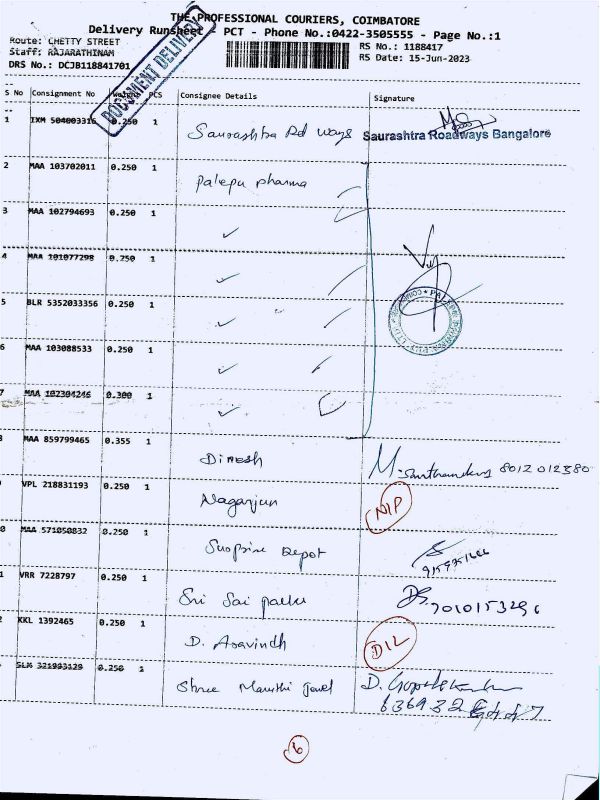 THE PROFESSIONAL COURIERS, COIMBATORE
Delivery Runsheet PCT - Phone No.:0422-3505555 - Page No.:1
Route: CHETTY STREET
Staff: RAJARATHINAM
DRS No.: DCJB118841701
RS No.: 1188417
RS Date: 15-Jun-2023
DOCUMENT DELIVERY
S No Consignment No Weight PCS Consignee Details Signature
1 IXM 504003316 0.250 1 Saurashtra Rd ways Saurashtra Roadways Bangalore
2 MAA 103702011 0.250 1 Palepu pharma
3 MAA 102794693 0.250 1 ✓
4 MAA 101077298 0.250 1 ✓
5 BLR 5352033356 0.250 1 ✓
6 MAA 103088533 0.250 1 ✓
7 MAA 102304246 0.300 1 ✓
8 MAA 859799465 0.355 1 Dinesh 8012012380
9 VPL 218831193 0.250 1 Nagarjun
0 MAA 571050832 0.250 1 Surprise Depot
1 VRR 7228797 0.250 1 Sri Sai 7010153296
2 KKL 1392465 0.250 1 D. Aravindh D12
SLM 321993129 0.250 1 Shree Maruthi Jewel
6